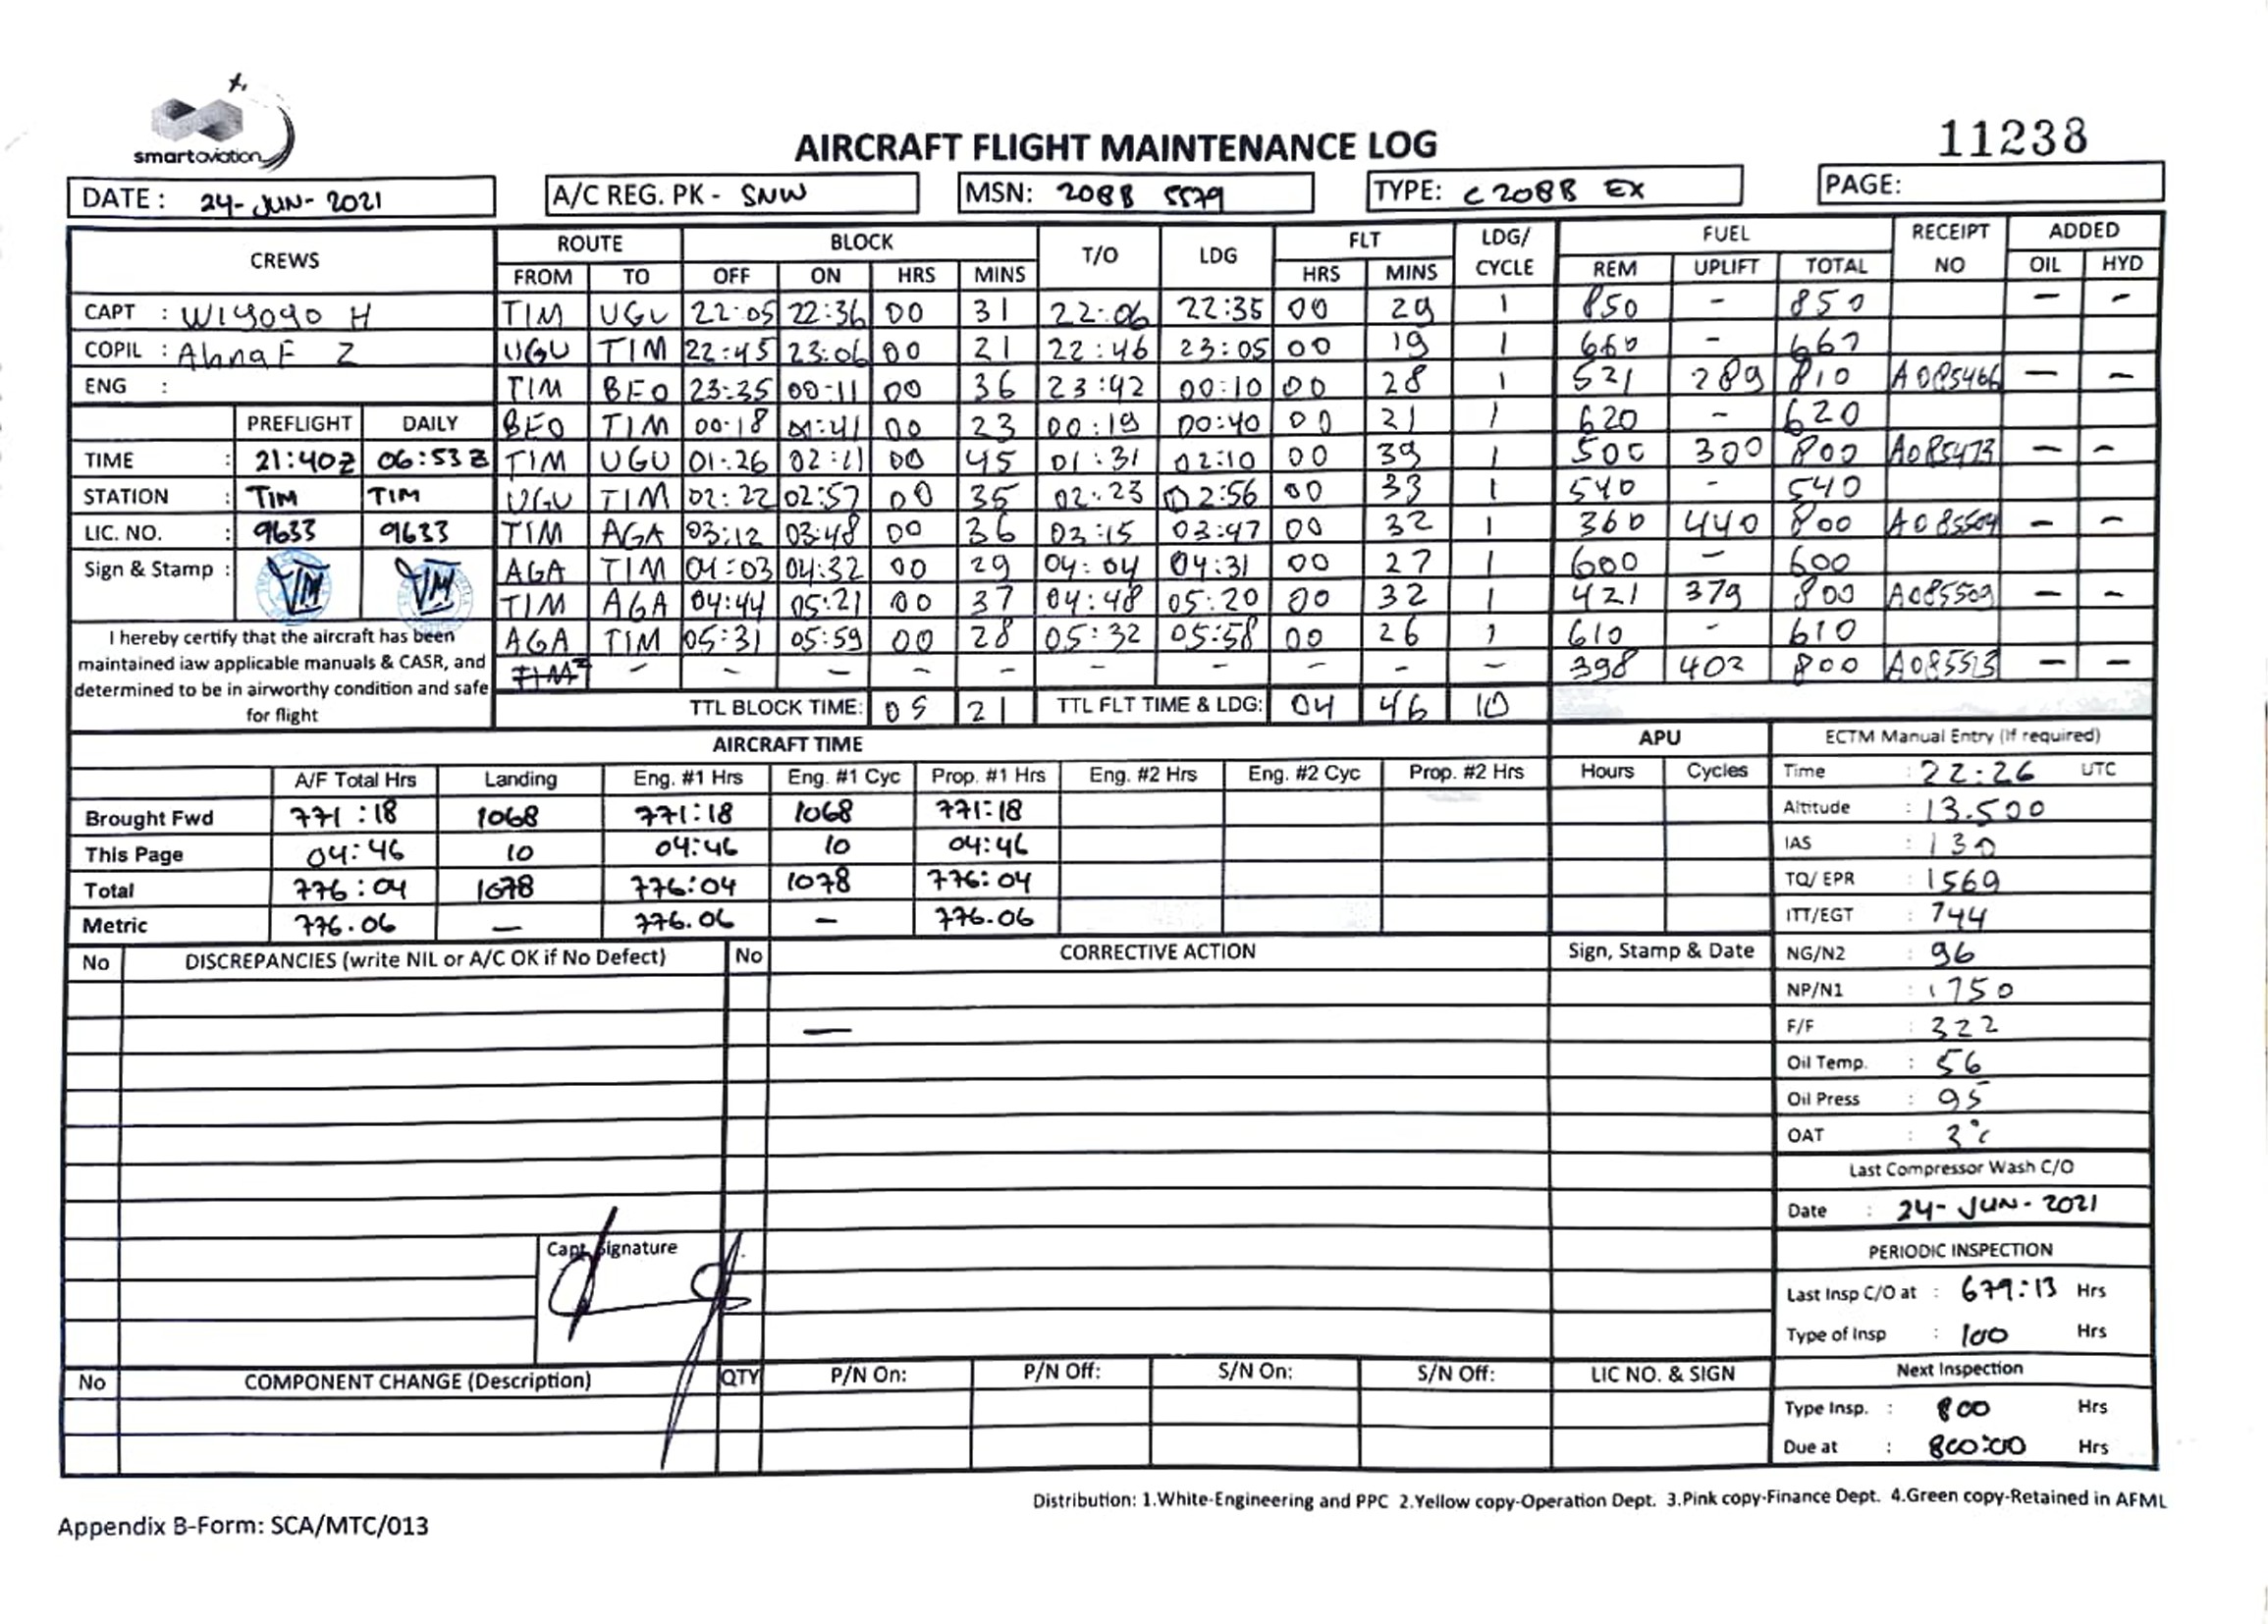 smartaviation
AIRCRAFT FLIGHT MAINTENANCE LOG
11238
DATE : 24-JUN-2021
A/C REG. PK - SNW
MSN: 208B 5579
TYPE: C 208B EX
PAGE:
CREWS ROUTE BLOCK T/O LDG FLT LDG/ CYCLE FUEL RECEIPT NO ADDED
FROM TO OFF ON HRS MINS HRS MINS REM UPLIFT TOTAL OIL HYD
CAPT : Wiyogo H TIM UGU 22:05 22:36 00 31 22:06 22:35 00 29 1 850 - 850 - -
COPIL : Ahnaf Z UGU TIM 22:45 23:06 00 21 22:46 23:05 00 19 1 660 - 660
ENG : TIM BEO 23:35 00:11 00 36 23:42 00:10 00 28 1 521 289 810 A085466 - -
PREFLIGHT DAILY BEO TIM 00:18 00:41 00 23 00:19 00:40 00 21 1 620 - 620
TIME : 21:40Z 06:53Z TIM UGU 01:26 02:11 00 45 01:31 02:10 00 39 1 500 300 800 A085473 - -
STATION : TIM TIM UGU TIM 02:22 02:57 00 35 02:23 02:56 00 33 1 540 - 540
LIC. NO. : 9633 9633 TIM AGA 03:12 03:48 00 36 03:15 03:47 00 32 1 360 440 800 A085504 - -
Sign & Stamp : TIM TIM AGA TIM 04:03 04:32 00 29 04:04 04:31 00 27 1 600 - 600
TIM AGA 04:44 05:21 00 37 04:48 05:20 00 32 1 421 379 800 A085509 - -
AGA TIM 05:31 05:59 00 28 05:32 05:58 00 26 1 610 - 610
TIM - - - - - - - - - - 398 402 800 A085513 - -
I hereby certify that the aircraft has been
maintained iaw applicable manuals & CASR, and
determined to be in airworthy condition and safe
for flight
TTL BLOCK TIME: 05 21 TTL FLT TIME & LDG: 04 46 10
AIRCRAFT TIME APU
A/F Total Hrs Landing Eng. #1 Hrs Eng. #1 Cyc Prop. #1 Hrs Eng. #2 Hrs Eng. #2 Cyc Prop. #2 Hrs Hours Cycles
Brought Fwd 771:18 1068 771:18 1068 771:18
This Page 04:46 10 04:46 10 04:46
Total 776:04 1078 776:04 1078 776:04
Metric 776.06 - 776.06 - 776.06
ECTM Manual Entry (If required)
Time : 22:26 UTC
Altitude : 13.500
IAS : 130
TQ/ EPR : 1569
ITT/EGT : 744
NG/N2 : 96
NP/N1 : 1750
F/F : 322
Oil Temp. : 56
Oil Press : 95
OAT : 3°c
Last Compressor Wash C/O
Date : 24-JUN-2021
PERIODIC INSPECTION
Last Insp C/O at : 679:13 Hrs
Type of Insp : 100 Hrs
Next Inspection
Type Insp. : 800 Hrs
Due at : 800:00 Hrs
No DISCREPANCIES (write NIL or A/C OK if No Defect) No CORRECTIVE ACTION Sign, Stamp & Date
-
Capt. Signature
No COMPONENT CHANGE (Description) QTY P/N On: P/N Off: S/N On: S/N Off: LIC NO. & SIGN
Distribution: 1.White-Engineering and PPC 2.Yellow copy-Operation Dept. 3.Pink copy-Finance Dept. 4.Green copy-Retained in AFML
Appendix B-Form: SCA/MTC/013